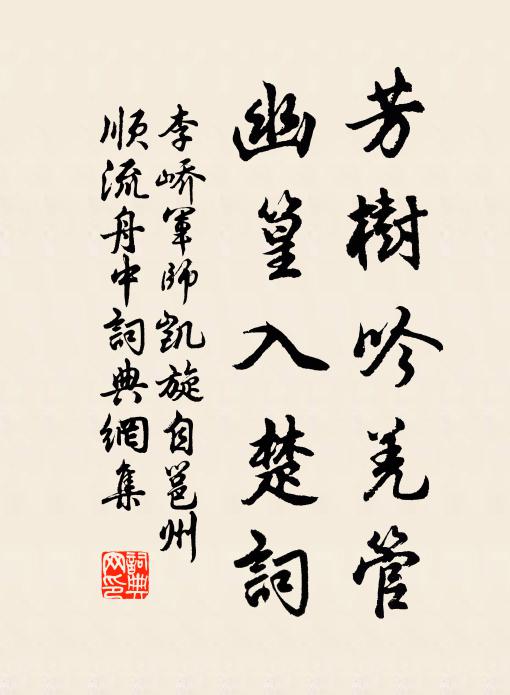 芳樹吟羌管
幽篁入楚詞
李嶠軍師凱旋自邕州
順流舟中詞典網集
詞典網印